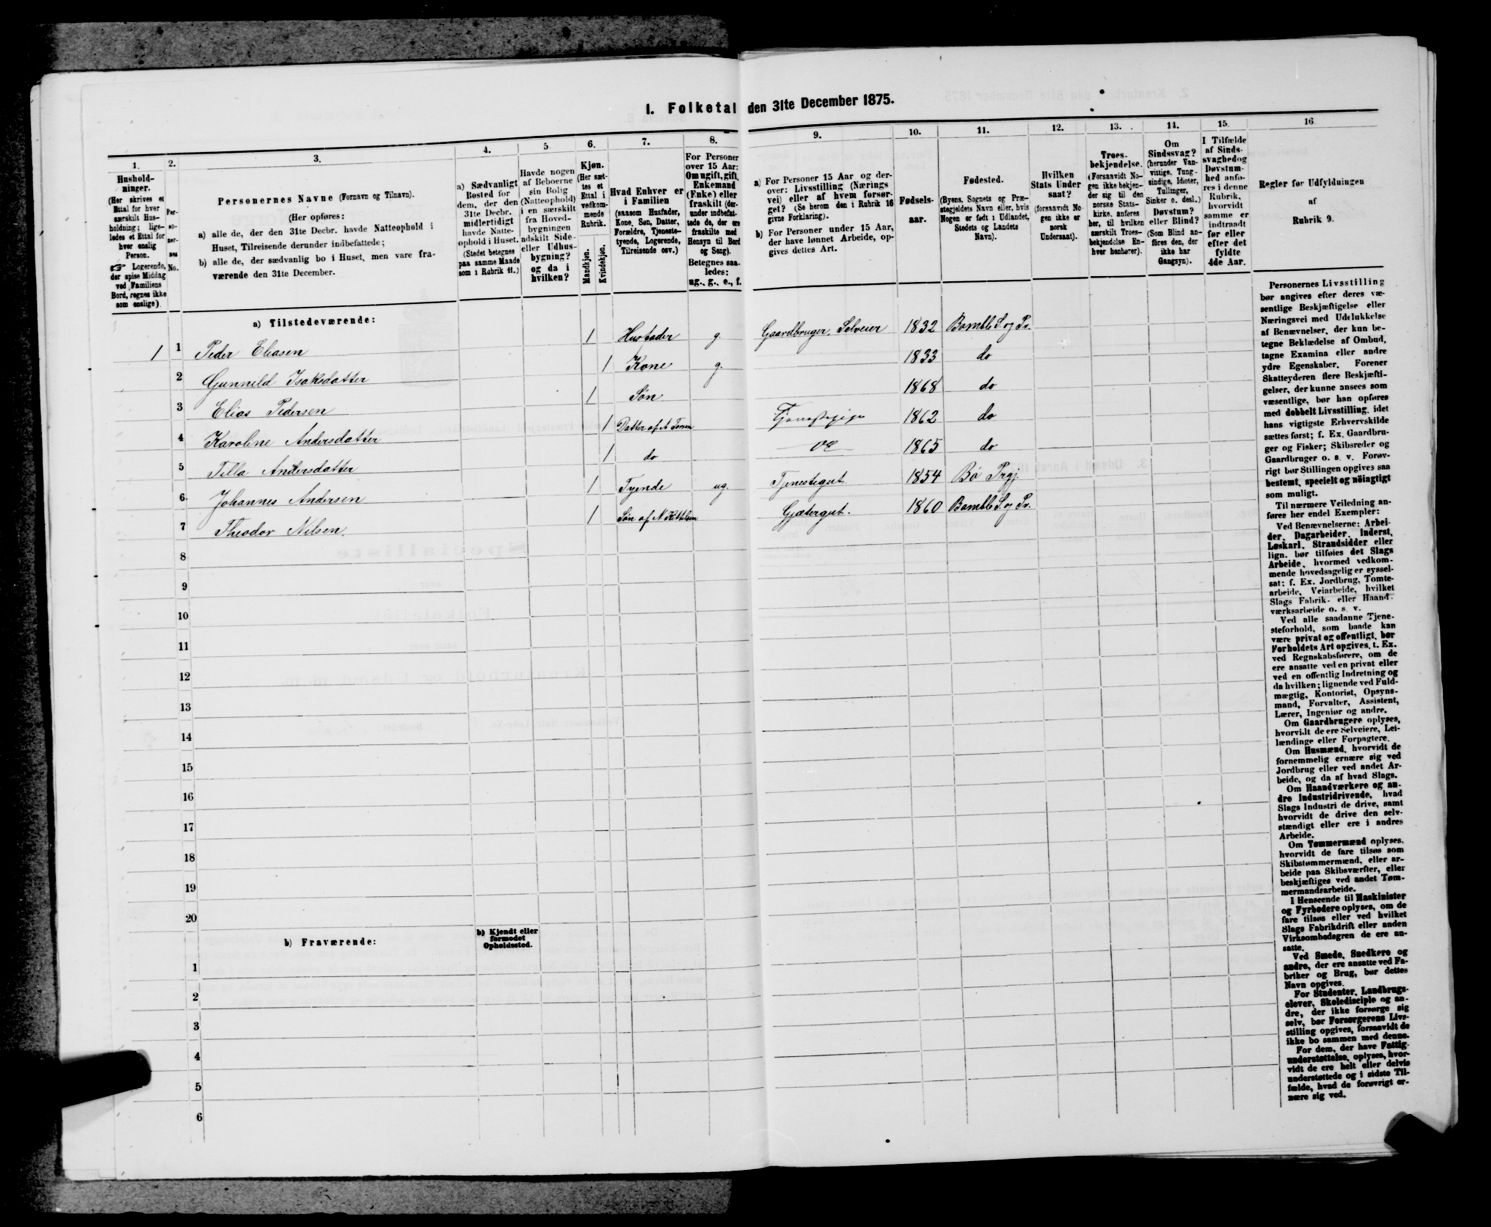 I. Folketal den 31te December 1875.
1. 2. 3. 4. 5 6. 7. 8. 9. 10. 11. 12. 13. 14. 15. 16
Hushold-
ninger.
(Her skrives et
Ettal for hver
særskilt Hus-
holdning; lige-
ledes et Ettal for
hver enslig
Person.
☞ Logerende,
der spise Middag
ved Familiens
Bord, regnes ikke
som enslige)
Per-
so-
ner-
nes
No.
Personernes Navne (Fornavn og Tilnavn).
(Her opføres:
a) alle de, der den 31te Decbr. havde Natteophold i
Huset, Tilreisende derunder indbefattede;
b) alle de, der sædvanlig bo i Huset, men vare fra-
værende den 31te December.
a) Sædvanligt
Bosted for
dem, der den
31te Decbr.
midlertidigt
havde Natte-
ophold i Huset.
(Stedet betegnes
paa samme Maade
som i Rubrik 11.)
Havde nogen
af Beboerne
sin Bolig
(Natteophold)
i en særskilt
fra Hoved-
bygningen
adskilt Side-
eller Udhus-
bygning?
og da i
hvilken?
Kjøn.
(Her sæt-
tes et
Ettal i
vedkom-
mende
Rubrik.
Mandkjøn.
Kvindekjøn.
Hvad Enhver er
i Familien
(saasom Husfader,
Kone, Søn, Datter,
Forældre, Tjeneste-
tyende, Logerende,
Tilreisende osv.)
For Personer
over 15 Aar:
Om ugift, gift,
Enkemand
(Enke) eller
fraskilt (der-
under indbefat-
tede de, der ere
fraskilte med
Hensyn til Bord
og Seng).
Betegnes saa-
ledes:
ug., g., e., f.
a) For Personer 15 Aar og der-
over: Livsstilling (Nærings
vei) eller af hvem forsør-
get? (Se herom den i Rubrik 16
givne Forklaring).
b) For Personer under 15 Aar,
der have lønnet Arbeide, op-
gives dettes Art.
Fødsels-
aar.
Fødested.
(Byens, Sognets og Præ-
stegjeldets Navn eller, hvis
Nogen er født i Udlandet,
Stedets og Landets
Navn).
Hvilken
Stats Under
saat?
(forsaavidt No-
gen ikke er
norsk
Undersaat).
Troes-
bekjendelse.
(Forsaavidt No-
gen ikke bekjen-
der sig til den
norske Stats-
kirke, anføres
her, til hvilken
særskilt Troes-
bekjendelse En-
hver henhører).
Om
Sindssvag?
(herunder Van-
vittige, Tung-
sindige, Idioter,
Tullinger,
Sinker o. desl.)
Døvstum?
eller Blind?
(Som Blind an-
føres den, der
ikke har
Gangsyn).
I Tilfælde
af Sinds-
svaghed og
Døvstum-
hed anfø-
res i denne
Rubrik,
hvorvidt
samme er
indtraadt
før eller
efter det
fyldte
4de Aar.
Regler for Udfyldningen
af
Rubrik 9.
a) Tilstedeværende:
1 1 Peder Eliasen 1 Husfader g. Gaardbruger, Selveier 1832 Bamble S. og Pr.
2 Gunnild Isaksdatter 1 Kone g. 1833 do
3 Elias Pedersen 1 Søn 1868 do
4 Karoline Andersdatter 1 Datter af A. Tjenestepige 1862 do
5 Tilla Andersdatter 1 do 1865 do
6 Johannes Andersen 1 Tyende ug. Tjenestegut 1854 Bø Prgj.
7 Theodor Nilsen. 1 Søn af N. Gjætergut. 1860 Bamble S. og Pr.
8
9
10
11
12
13
14
15
16
17
18
19
20
b) Fraværende:
b) Kjendt eller
formodet
Opholdssted.
1
2
3
4
5
6
Personernes Livsstilling
bør angives efter deres væ-
sentlige Beskjæftigelse eller
Næringsvei med Udelukkelse
af Benævnelser, der kun be-
tegne Beklædelse af Ombud,
tagne Examina eller andre
ydre Egenskaber. Forener
Skatteyderen flere Beskjæfti-
gelser, der kunne ansees som
væsentlige, bør han opføres
med dobbelt Livsstilling, idet
hans vigtigste Erhvervskilde
sættes først; f. Ex. Gaardbru-
ger og Fisker; Skibsreder og
Gaardbruger o. s. v. Forøv-
rigt bør Stillingen opgives saa
bestemt, specielt og nøiagtigt
som muligt.
Til nærmere Veiledning an-
føres her endel Exempler:
Ved Benævnelserne: Arbei-
der, Dagarbeider, Inderst,
Løskarl, Strandsidder eller
lign. bør tilføies det Slags
Arbeide, hvormed vedkom-
mende hovedsagelig er syssel-
sat; f. Ex. Jordbrug, Tomte-
arbeide, Veiarbeide, hvilket
Slags Fabrik- eller Haand-
værksarbeide o. s. v.
Ved alle saadanne Tjene-
steforhold, som baade kan
være privat og offentligt, bør
Forholdets Art opgives, t. Ex.
ved Regnskabsførere, om de
ere ansatte ved en privat eller
ved en offentlig Indretning og
da hvilken; lignende ved Fuld-
mægtig, Kontorist, Opsyns-
mand, Forvalter, Assistent,
Lærer, Ingeniør og andre.
Om Gaardbrugere oplyses,
hvorvidt de ere Selveiere, Lei-
lændinge eller Forpagtere.
Om Husmænd, hvorvidt de
fornemmelig ernære sig ved
Jordbrug eller ved andet Ar-
beide, og da af hvad Slags.
Om Haandværkere og an-
dre Industridrivende, hvad
Slags Industri de drive, samt
hvorvidt de drive den selv-
stændigt eller ere i andres
Arbeide.
Om Tømmermænd oplyses,
hvorvidt de fare tilsøs som
Skibstømmermænd, eller ar-
beide paa Skibsværfter, eller
beskjæftiges ved andet Tøm-
mermandsarbeide.
I Henseende til Maskinister
og Fyrbødere oplyses, om de
fare tilsøs eller ved hvilket
Slags Fabrikdrift eller anden
Virksomhedsgren de ere an-
satte.
Ved Smede, Snedkere og
andre, der ere ansatte ved Fa-
briker og Brug, bør dettes
Navn opgives.
For Studenter, Landbrugs-
elever, Skoledisciple og an-
dre, der ikke forsørge sig
selv, bør Forsørgerens Livs-
stilling opgives, forsaavidt de
ikke bo sammen med denne.
For dem, der have Fattig-
understøttelse, oplyses, hvor-
vidt de ere helt eller delvis
understøttede og i sidste Til-
fælde, hvad de forøvrigt er-
nære sig ved.